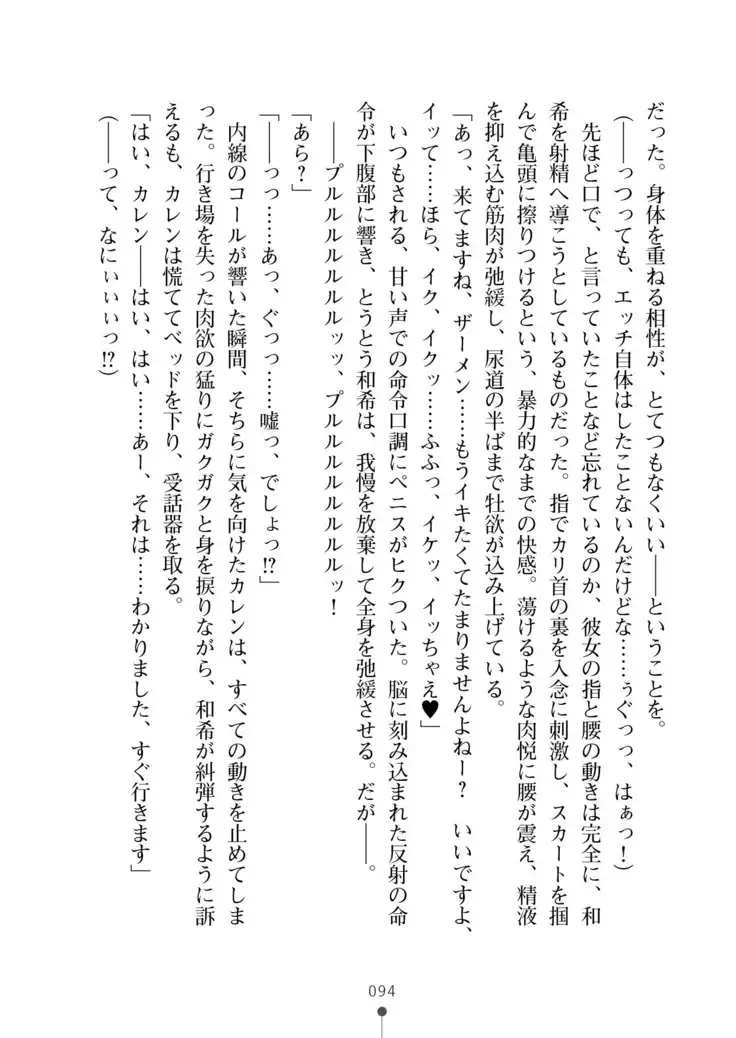 だった。身体を重ねる相性が、とてつもなくいい――ということを。
(――っつっても、エッチ自体はしたことないんだけどな……ぅぐっっ、はぁっ！)
先ほど口で、と言っていたことなど忘れているのか、彼女の指と腰の動きは完全に、和
希を射精へ導こうとしているものだった。指でカリ首の裏を入念に刺激し、スカートを掴
んで亀頭に擦りつけるという、暴力的なまでの快感。蕩けるような肉悦に腰が震え、精液
を抑え込む筋肉が弛緩し、尿道の半ばまで牡欲が込み上げている。
「あっ、来てますね、ザーメン……もうイキたくてたまりませんよねー？　いいですよ、
イッて……ほら、イク、イクッ……ふふっ、イケッ、イッちゃえ♥」
いつもされる、甘い声での命令口調にペニスがヒクついた。脳に刻み込まれた反射の命
令が下腹部に響き、とうとう和希は、我慢を放棄して全身を弛緩させる。だが――。
――プルルルルルルルッッ、プルルルルルルルルッ！
「あら？」
「――っっ……あっ、ぐっっ……嘘っ、でしょっ!?」
内線のコールが響いた瞬間、そちらに気を向けたカレンは、すべての動きを止めてしま
った。行き場を失った肉欲の猛りにガクガクと身を捩りながら、和希が糾弾するように訴
えるも、カレンは慌ててベッドを下り、受話器を取る。
「はい、カレン――はい、はい……あー、それは……わかりました、すぐ行きます」
(――って、なにぃぃぃっ!?)
094